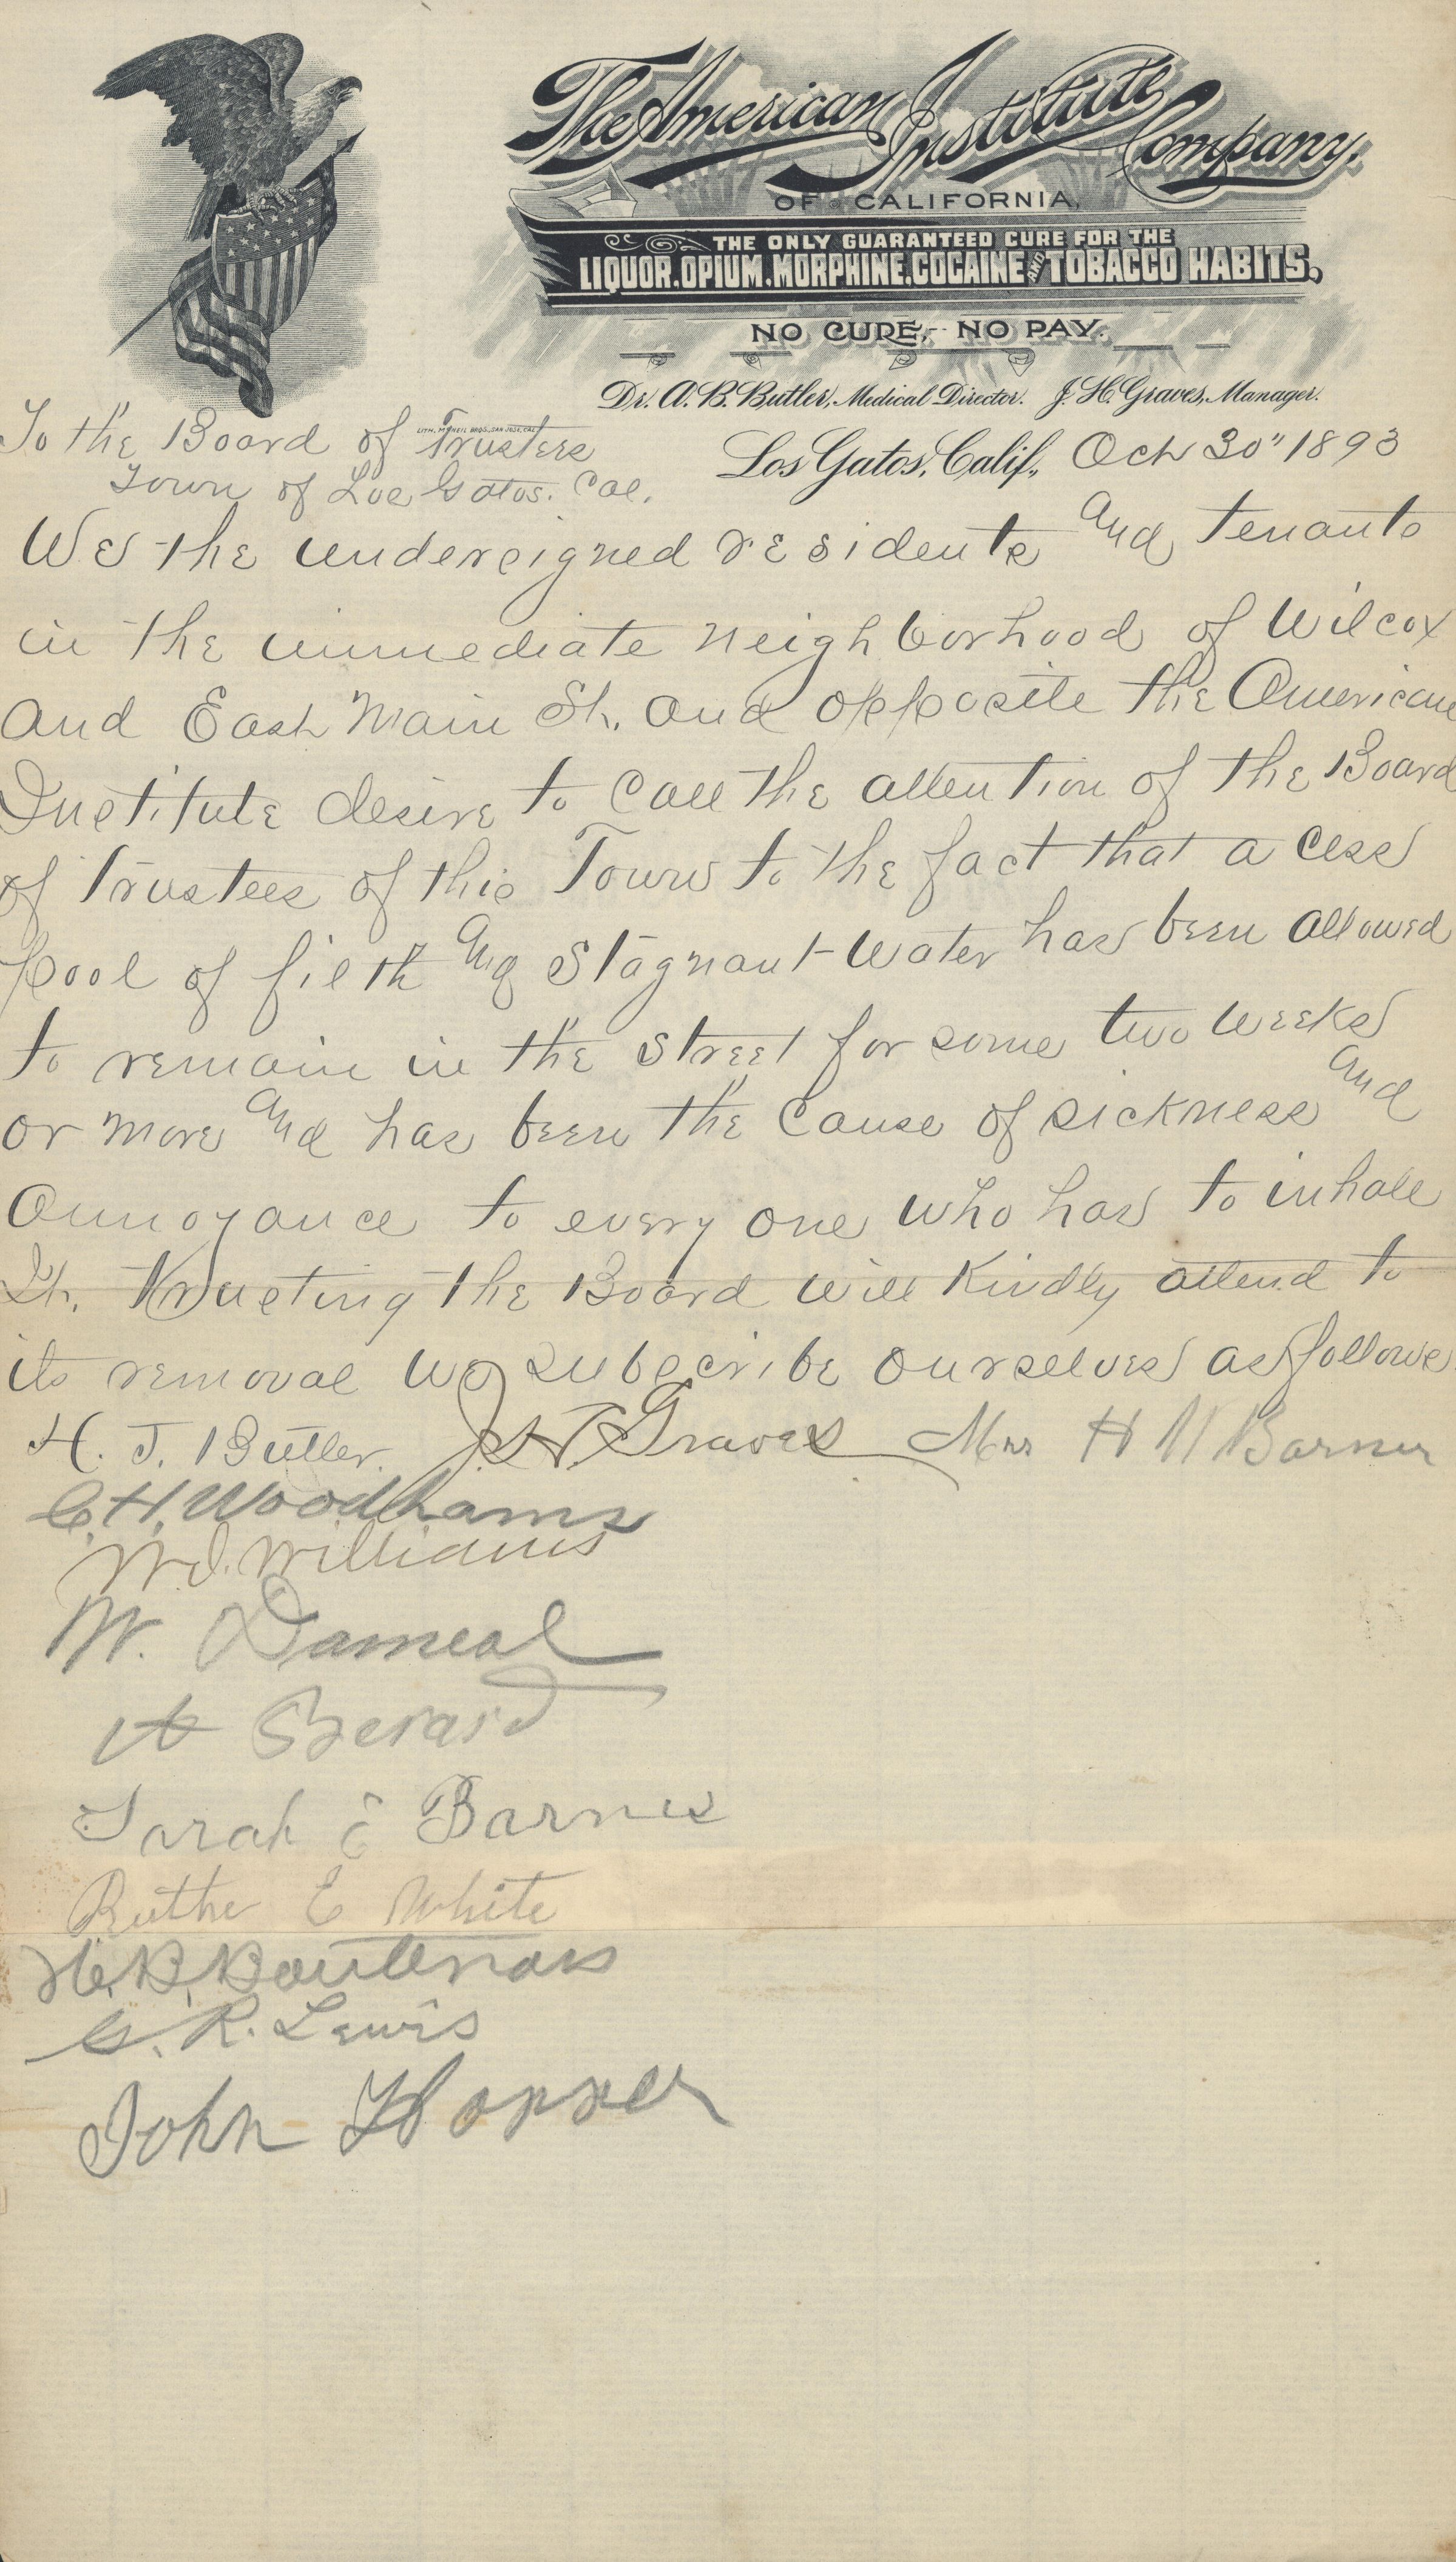 The American Institute Company.
OF CALIFORNIA,
THE ONLY GUARANTEED CURE FOR THE
LIQUOR, OPIUM, MORPHINE, COCAINE AND TOBACCO HABITS.
NO CURE, - NO PAY.
Dr. A. B. Butler, Medical Director. J. H. Graves, Manager.
LITH. McNEIL BROS., SAN JOSE, CAL.
Los Gatos, Calif., Oct 30" 1893
To the Board of Trustees
Town of Los Gatos. Cal.
We the undersigned residents and tenants
in the immediate neighborhood of Wilcox
and East Main St. and opposite the American
Institute desire to call the attention of the Board
of Trustees of this Town to the fact that a cess
pool of filth and stagnant water has been allowed
to remain in the street for some two weeks
or more and has been the cause of sickness and
annoyance to every one who has to inhale
It. Trusting the Board will kindly attend to
its removal we subscribe ourselves as follows
H. J. Butler. J. H. Graves Mrs H
C. H. Woodhams
W. J. Williams
W.
Sarah E Barnes
E White
H. B.
R. Lewis
John